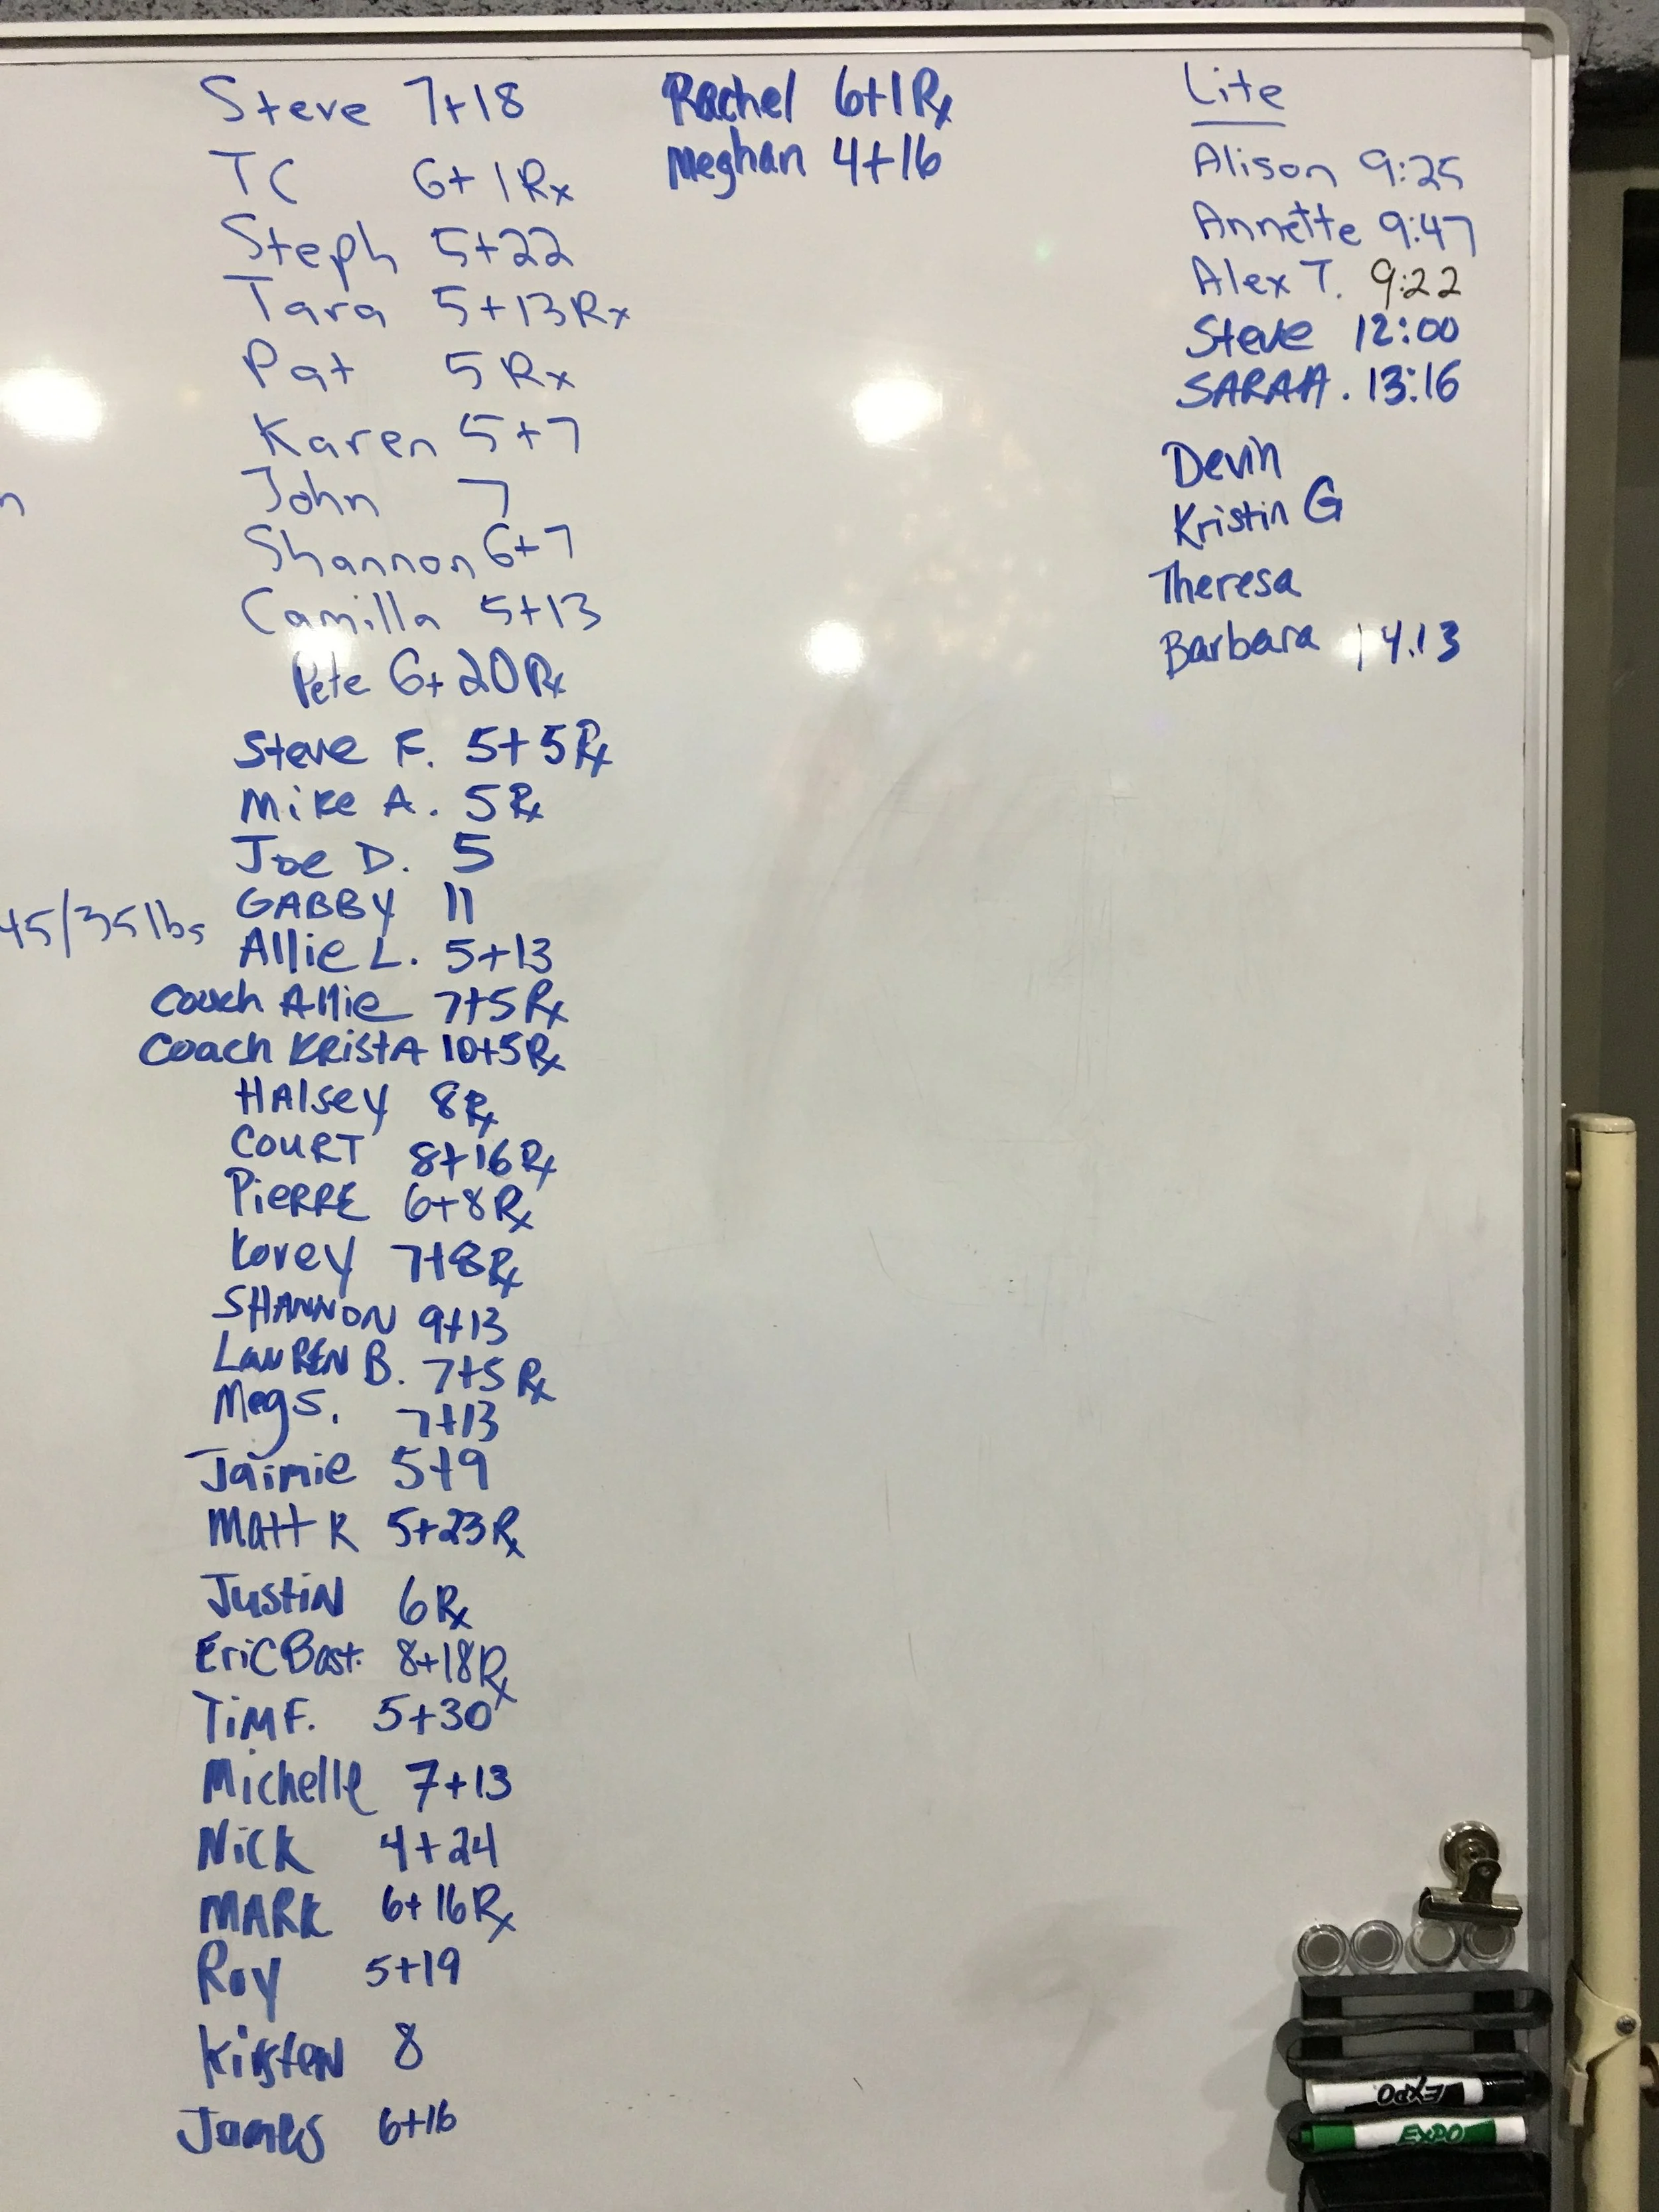 Steve 7+18
TC 6+1Rx
Steph 5+22
Tara 5+13Rx
Pat 5 Rx
Karen 5+7
John 7
Shannon 6+7
Camilla 5+13
Pete 6+20Rx
Steve F. 5+5Rx
Mike A. 5Rx
Joe D. 5
GABBY 11
45/35lbs
Allie L. 5+13
Coach Allie 7+5Rx
Coach KristA 10+5Rx
HAlsey 8Rx
COURT 8+16Rx
PiERRE 6+8Rx
Korey 7+8Rx
SHANNON 9+13
LAUREN B. 7+5Rx
Meg S. 7+13
Jaimie 5+9
Matt K 5+23Rx
JustiN 6Rx
EriC Bast. 8+18Rx
TiM F. 5+30
Michelle 7+13
Nick 4+24
MARK 6+16Rx
Roy 5+19
KirsteN 8
James 6+16
Rachel 6+1Rx
Meghan 4+16
Lite
Alison 9:25
Annette 9:47
Alex T. 9:22
Steve 12:00
SARAH. 13:16
Devin
Kristin G
Theresa
Barbara 14:13
EXPO
EXPO